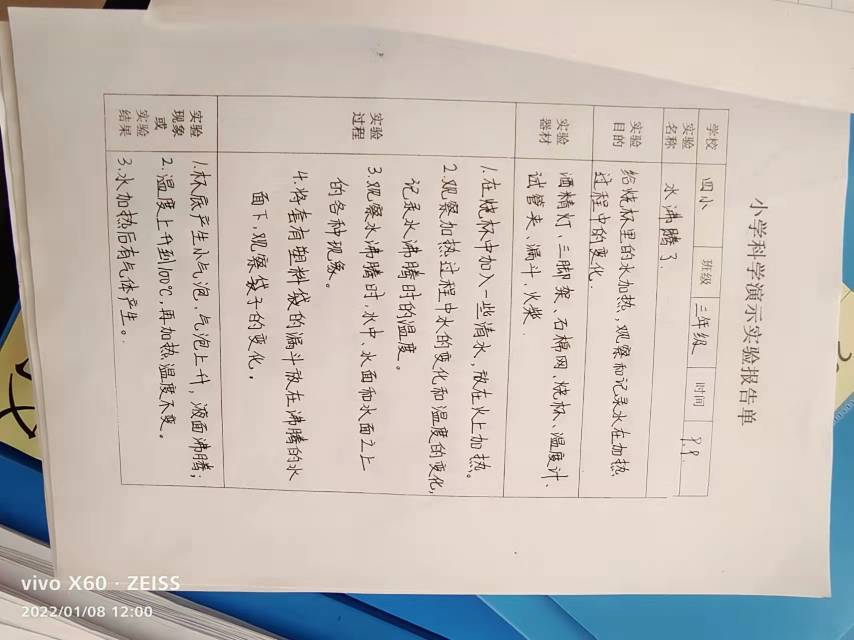 小学科学演示实验报告单
学校 四小 班级 三年级 时间 9.9.
实验名称 水沸腾了.
实验目的 给烧杯里的水加热,观察和记录水在加热
过程中的变化.
实验器材 酒精灯、三脚架、石棉网、烧杯、温度计、
试管夹、漏斗、火柴.
实验过程 1.在烧杯中加入一些清水,放在火上加热。
2.观察加热过程中水的变化和温度的变化,
记录水沸腾时的温度。
3.观察水沸腾时,水中、水面和水面之上
的各种现象。
4.将套有塑料袋的漏斗放在沸腾的水
面下,观察袋子的变化。
实验现象或实验结果 1.杯底产生小气泡,气泡上升,液面沸腾;
2.温度上升到100℃,再加热温度不变。
3.水加热后有气体产生。
vivo X60 · ZEISS
2022/01/08 12:00